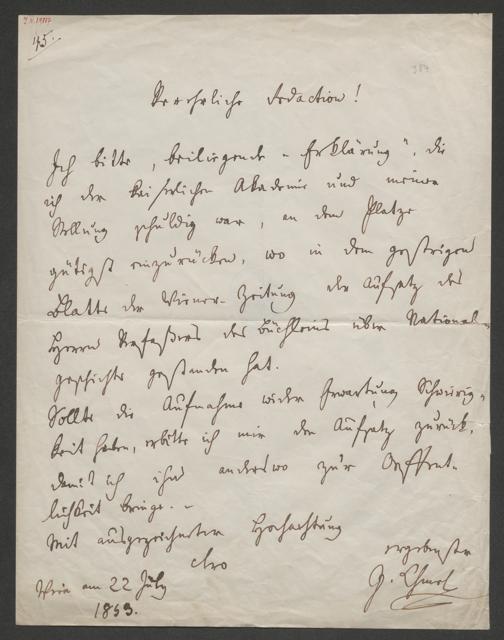 I. N. 19187
45.
Verehrliche Redaction!
Ich bitte, beiliegende „Erklärung“, die
ich der kaiserlichen Akademie und meiner
Stellung schuldig war, an dem Platze
gütigst einzurücken, wo in dem gestrigen
Blatte der Wiener-Zeitung der Aufsatz des
Herrn Verfassers des Büchleins über National-
geschichte gestanden hat.
Sollte die Aufnahme wider Erwartung Schwierig-
keit haben, erbitte ich mir den Aufsatz zurück,
damit ich ihn anderswo zur Oeffent-
lichkeit bringe. –
Mit ausgezeichneter Hochachtung
ergebenster
Wien am 22 July
1853.
J. Chmel